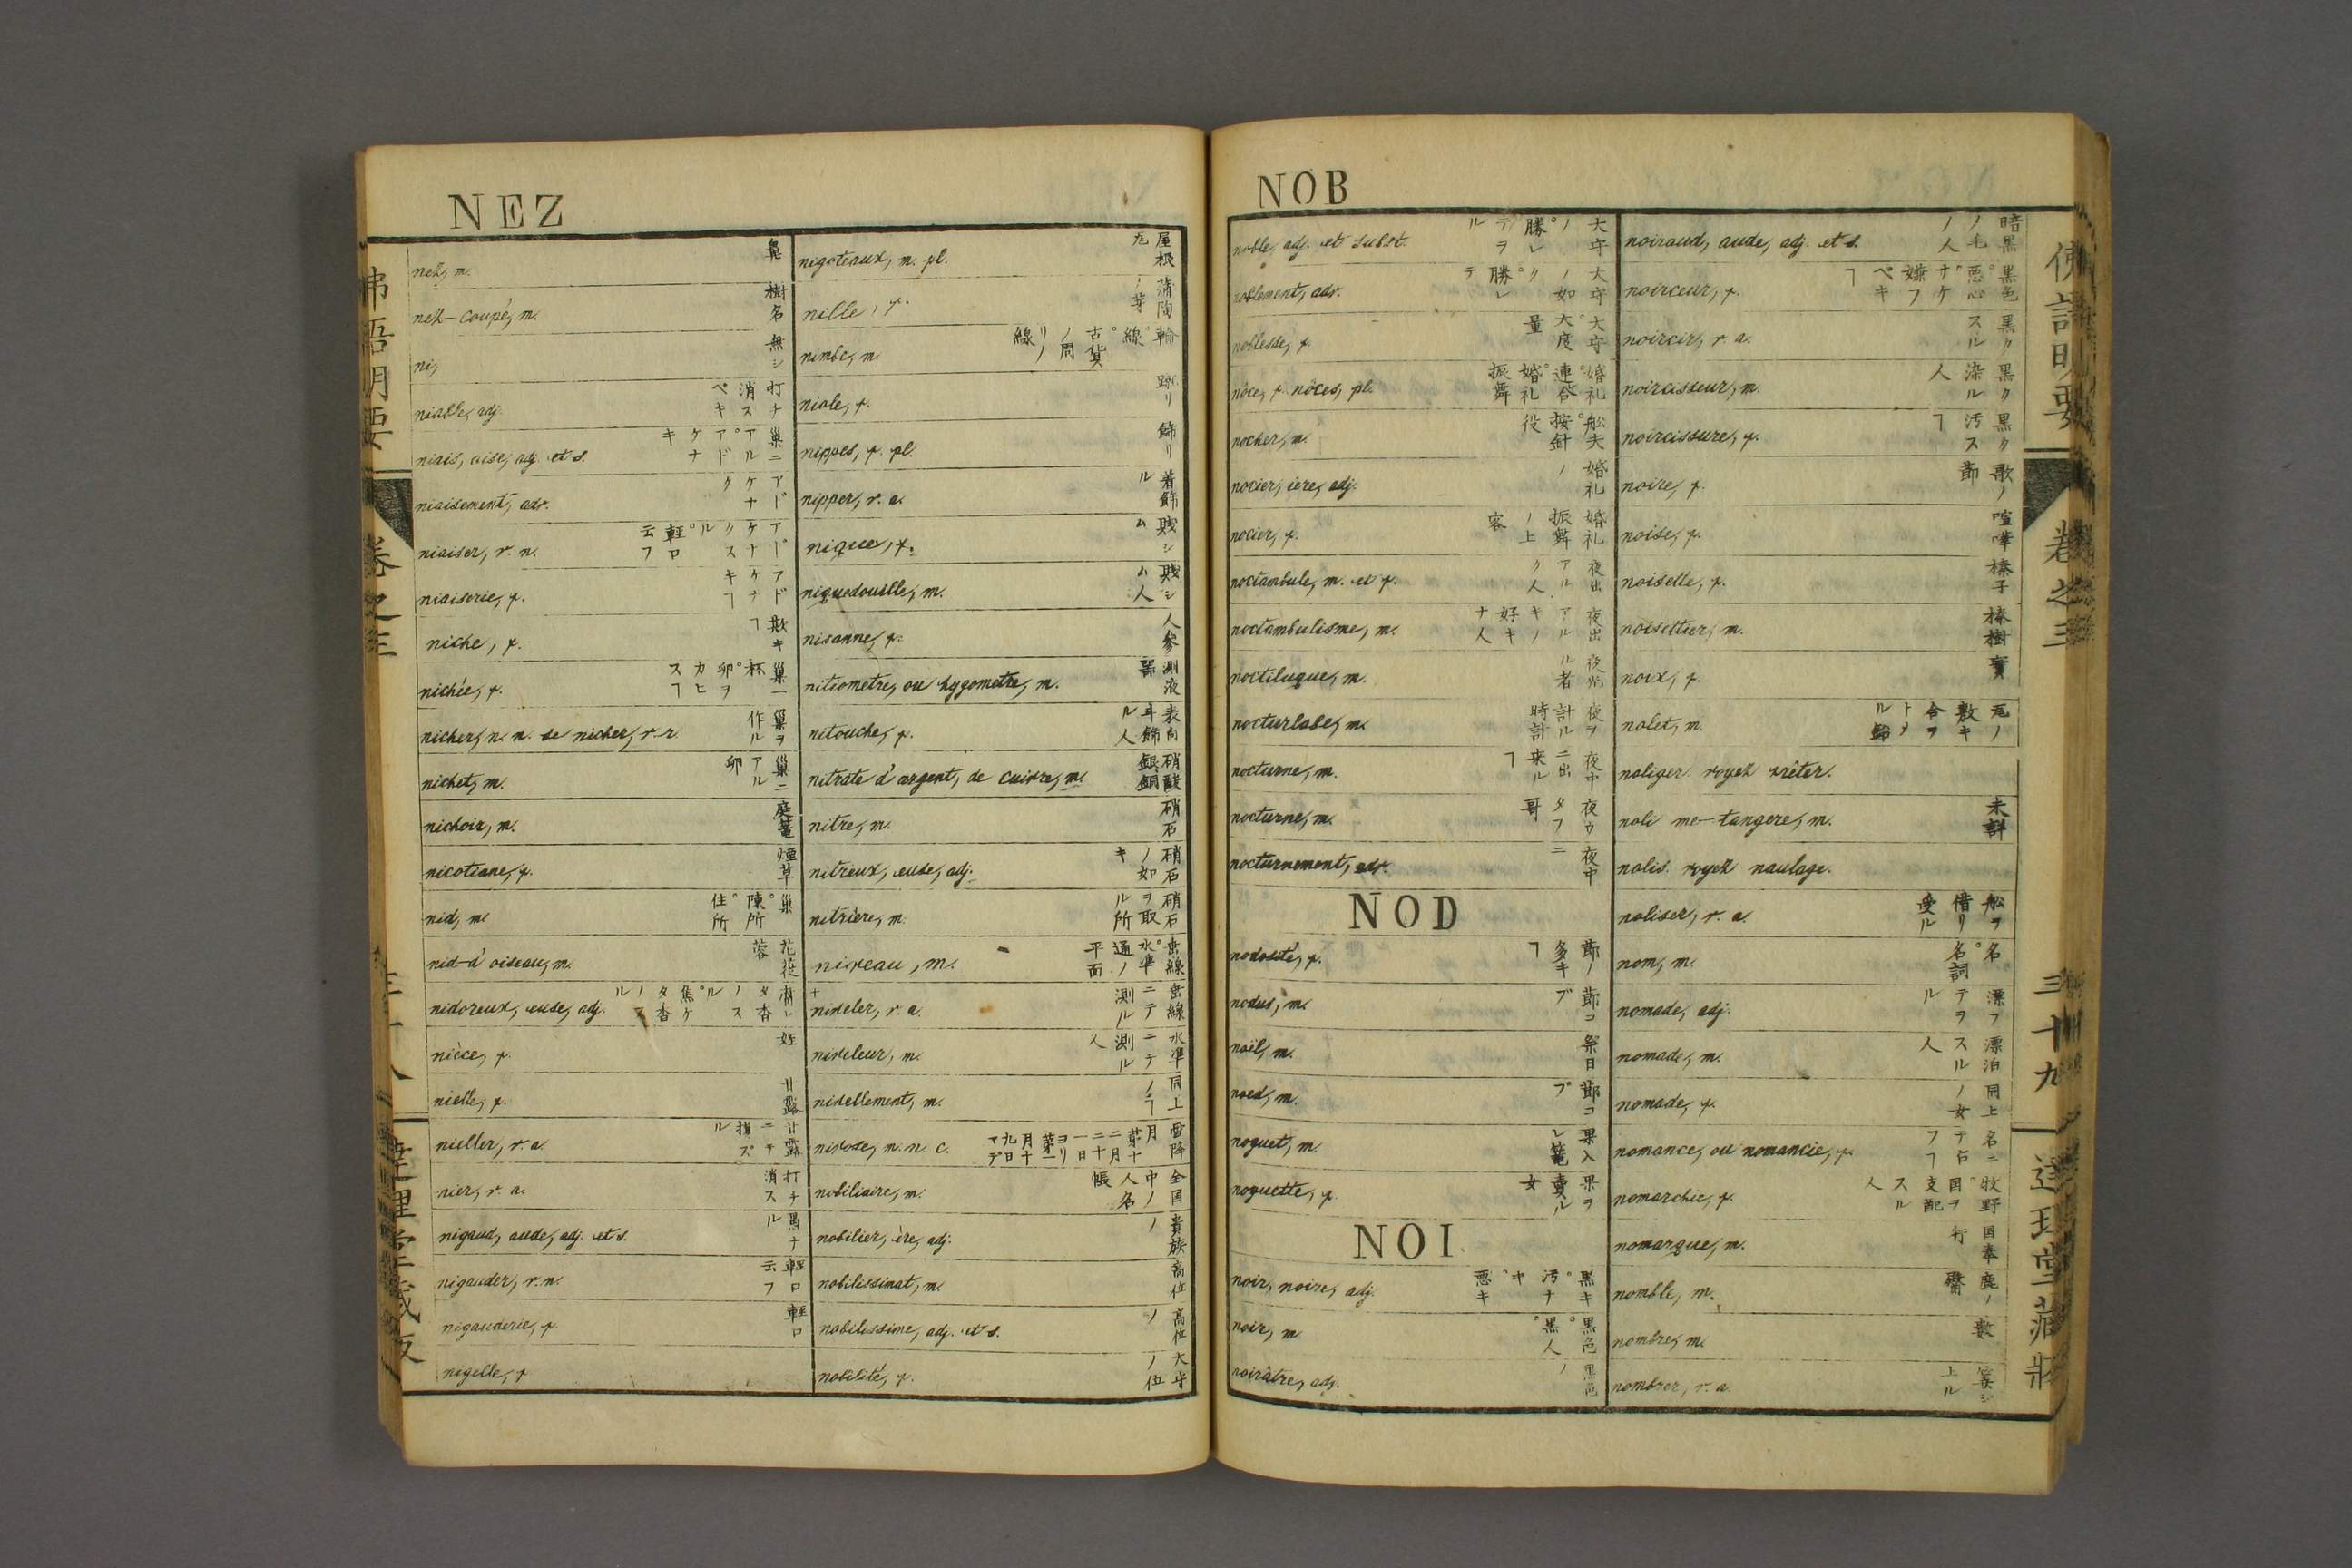 NEZ
nez, m. 鼻
nez-coupé, m. 樹名
ni, 無シ
niable, adj. 打チ消スベキ
niais, aise, adj. et s. 巣ニアル。アドケナキ
niaisement, adv. アドケナク
niaiser, v. n. アドケナクスル。軽口云フ
niaiserie, f. アドケナキヿ
niche, f. 欺キヿ
nichée, f. 巣一杯。卵ヲカヒスヿ
nicher, v. n. se nicher, v. r. 巣ヲ作ル
nichet, m. 巣ニアル卵
nichoir, m. 庭篭
nicotiane, f. 煙草
nid, m. 巣。陳所。住所
nid-d'oiseau, m. 花蓯蓉
nidoreux, euse, adj.
nièce, f. 姪
nielle, f. 甘露
nieller, v. a.
nier, v. a. 打チ消ス
nigaud, aude, adj. et s. 愚ナル
nigauder, v. n. 軽口云フ
nigauderie, f. 軽口
nigelle, f.
nigoteaux, m. pl. 屋根
nille, f. 蒲陶ノ芽
nimbe, m. 輪線。古貨ノ周リノ線
niole, f.
nippes, f. pl. 飾リ
nipper, v. a. 着飾ル
nique, f. 賤シム
niquedouille, m. 賤シム人
nisanne, f. 人参
nitiometre, ou hygometre, m. 測液器
nitouche, f. 表向キ飾ル人
nitrate d'argent, de cuivre, m. 硝酸銀銅
nitre, m. 硝石
nitreux, euse, adj. 硝石ノ如キ
nitrière, m. 硝石ヲ取ル所
niveau, m. 垂線。水準。通ノ平面
niveler, v. a. 垂線ニテ測ル
niveleur, m. 水準ニテ測ル人
nivellement, m. 同上ノヿ
nivose, m. n. c. 雪降月 第十二月二十一日ヨリ第一月十九日マデ
nobiliaire, m. 全国中ノ人名帳
nobilier, ère, adj. 貴族ノ
nobilissimat, m. 高位
nobilissime, adj. et s. 高位ノ
nobilité, f. 大守ノ位
NOB
noble, adj. et subst. 大守ノ。勝レテヲル
noblement, adv. 大守ノ如ク。勝レテ
noblesse, f. 大守。大度量
nôce, f. nôces, pl. 婚礼。連合。婚礼振舞
nocher, m. 舩夫。按針役
nocier, ière, adj. 婚礼ノ
nocier, f. 婚礼振舞ノ上客
noctambule, m. et f. 夜出アルク人
noctambulisme, m. 夜出アルキノ好キナ人
noctiluque, m. 夜光ル者
nocturlabe, m. 夜ヲ計ル時計
nocturne, m. 夜中ニ出来ルヿ
nocturne, m. 夜ウタフ哥
nocturnement, adv. 夜中ニ
NOD
nodosité, f. 節ノ多キヿ
nodus, m. 節コブ
noël, m. 祭日
noed, m. 節コブ
noguet, m. 果入レ篭
noguette, f. 果ヲ賣ル女
NOI
noir, noire, adj. 黒キ。汚ナヤ。悪キ
noir, m. 黒色。黒人。
noirâtre, adj. 黒色ノ
noiraud, aude, adj. et s. 暗黒ノ毛ノ人
noirceur, f. 黒色。悪心。嫌フベキヿ
noircir, v. a. 黒クスル
noircisseur, m. 黒ク染ル人
noircissure, f. 黒ク汚スヿ
noire, f. 歌ノ節
noise, f. 喧嘩
noisette, f. 榛子
noisettier, m. 榛樹
noix, f. 實
nolet, m.
noliger. voyez srêter.
noli me-tangere, m. 未詳
nolis. voyez naulage.
noliser, v. a. 舩ヲ借リ受ル
nom, m. 名。名詞
nomade, adj. 漂フテヲル
nomade, m. 漂泊スル人
nomade, f. 同上ノ女
nomance, ou nomancie, f. 名ニテ占フヿ
nomarchie, f. 牧野。国ヲ支配スル人
nomarque, m. 国奉行
nomble, m. 鹿ノ臀
nombre, m. 数
nombrer, v. a.
佛語明要
卷之三
三十九
達理堂蔵版